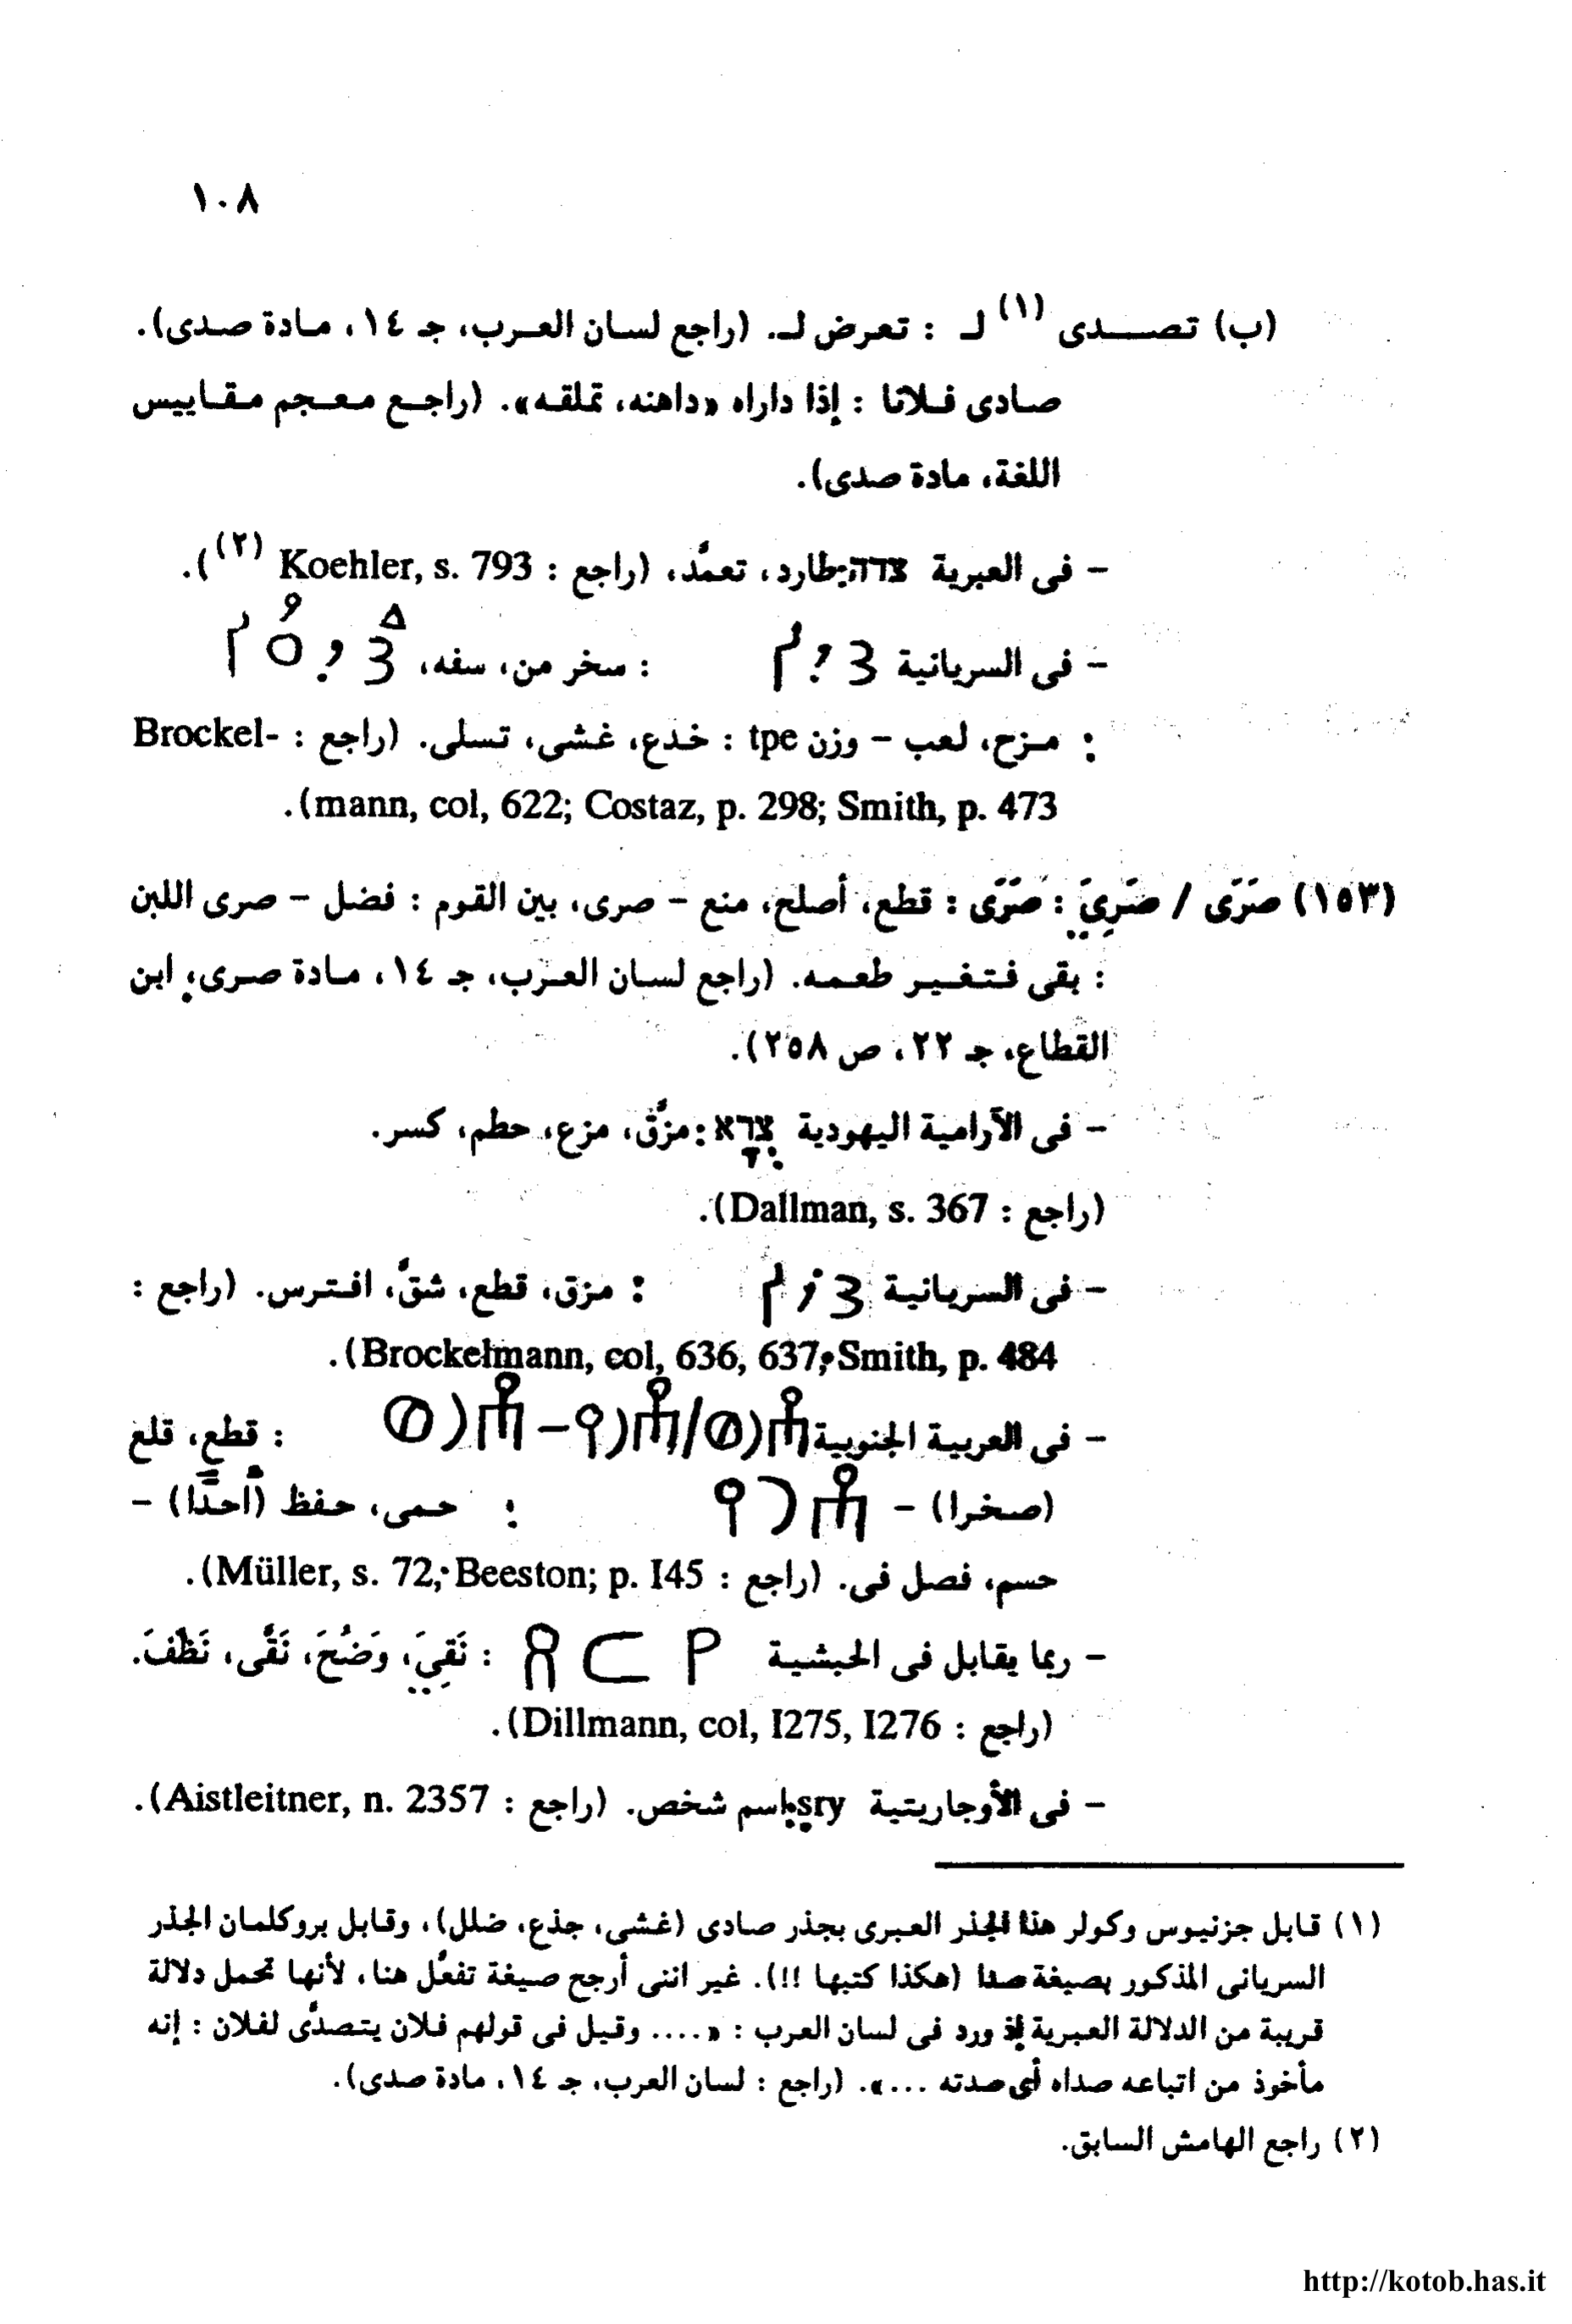 ١٠٨
(ب) تصدى (١) لـ : تعرض لـ. (راجع لسان العرب، جـ ١٤، مادة صدى).
صادى فلانا : إذا داراه «داهنه، تملقه». (راجع معجم مقاييس
اللغة، مادة صدى).
– فى العبرية צדה: طارد، تعمَّد، (راجع : Koehler, s. 793 (٢)).
– فى السريانية : سخر من، سفه،
: مزح، لعب – وزن tpe : خدع، غشى، تسلى. (راجع : Brockel-
mann, col, 622; Costaz, p. 298; Smith, p. 473).
(١٥٣) صَرَى / صَرِيَ : صَرَى : قطع، أصلح، منع – صرى، بين القوم : فضل – صرى اللبن
: بقى فتغير طعمه. (راجع لسان العرب، جـ ١٤، مادة صرى، ابن
القطاع، جـ ٢٢، ص ٢٥٨).
– فى الآرامية اليهودية צְרָא : مزَّق، مزع، حطم، كسر.
(راجع : Dallman, s. 367).
– فى السريانية : مزق، قطع، شقَّ، افترس. (راجع :
Brockelmann, col, 636, 637; Smith, p. 484).
– فى العربية الجنوبية : قطع، قلع
(صخرا) – : حمى، حفظ (أحدًا) –
حسم، فصل فى. (راجع : Müller, s. 72; Beeston; p. I45).
– ربما يقابل فى الحبشية : نَقِيَ، وَضُحَ، نَقَّى، نَظَّفَ.
(راجع : Dillmann, col, I275, I276).
– فى الأوجاريتية ṣry: اسم شخص. (راجع : Aistleitner, n. 2357).
(١) قابل جزنيوس وكولر هذا الجذر العبرى بجذر صادى (غشى، جذع، ضلل)، وقابل بروكلمان الجذر
السريانى المذكور بصيغة صدا (هكذا كتبها !!). غير اننى أرجح صيغة تفعَّل هنا، لأنها تحمل دلالة
قريبة من الدلالة العبرية إذ ورد فى لسان العرب : «.... وقيل فى قولهم فلان يتصدَّى لفلان : إنه
مأخوذ من اتباعه صداه أى صدته ...». (راجع : لسان العرب، جـ ١٤، مادة صدى).
(٢) راجع الهامش السابق.
http://kotob.has.it